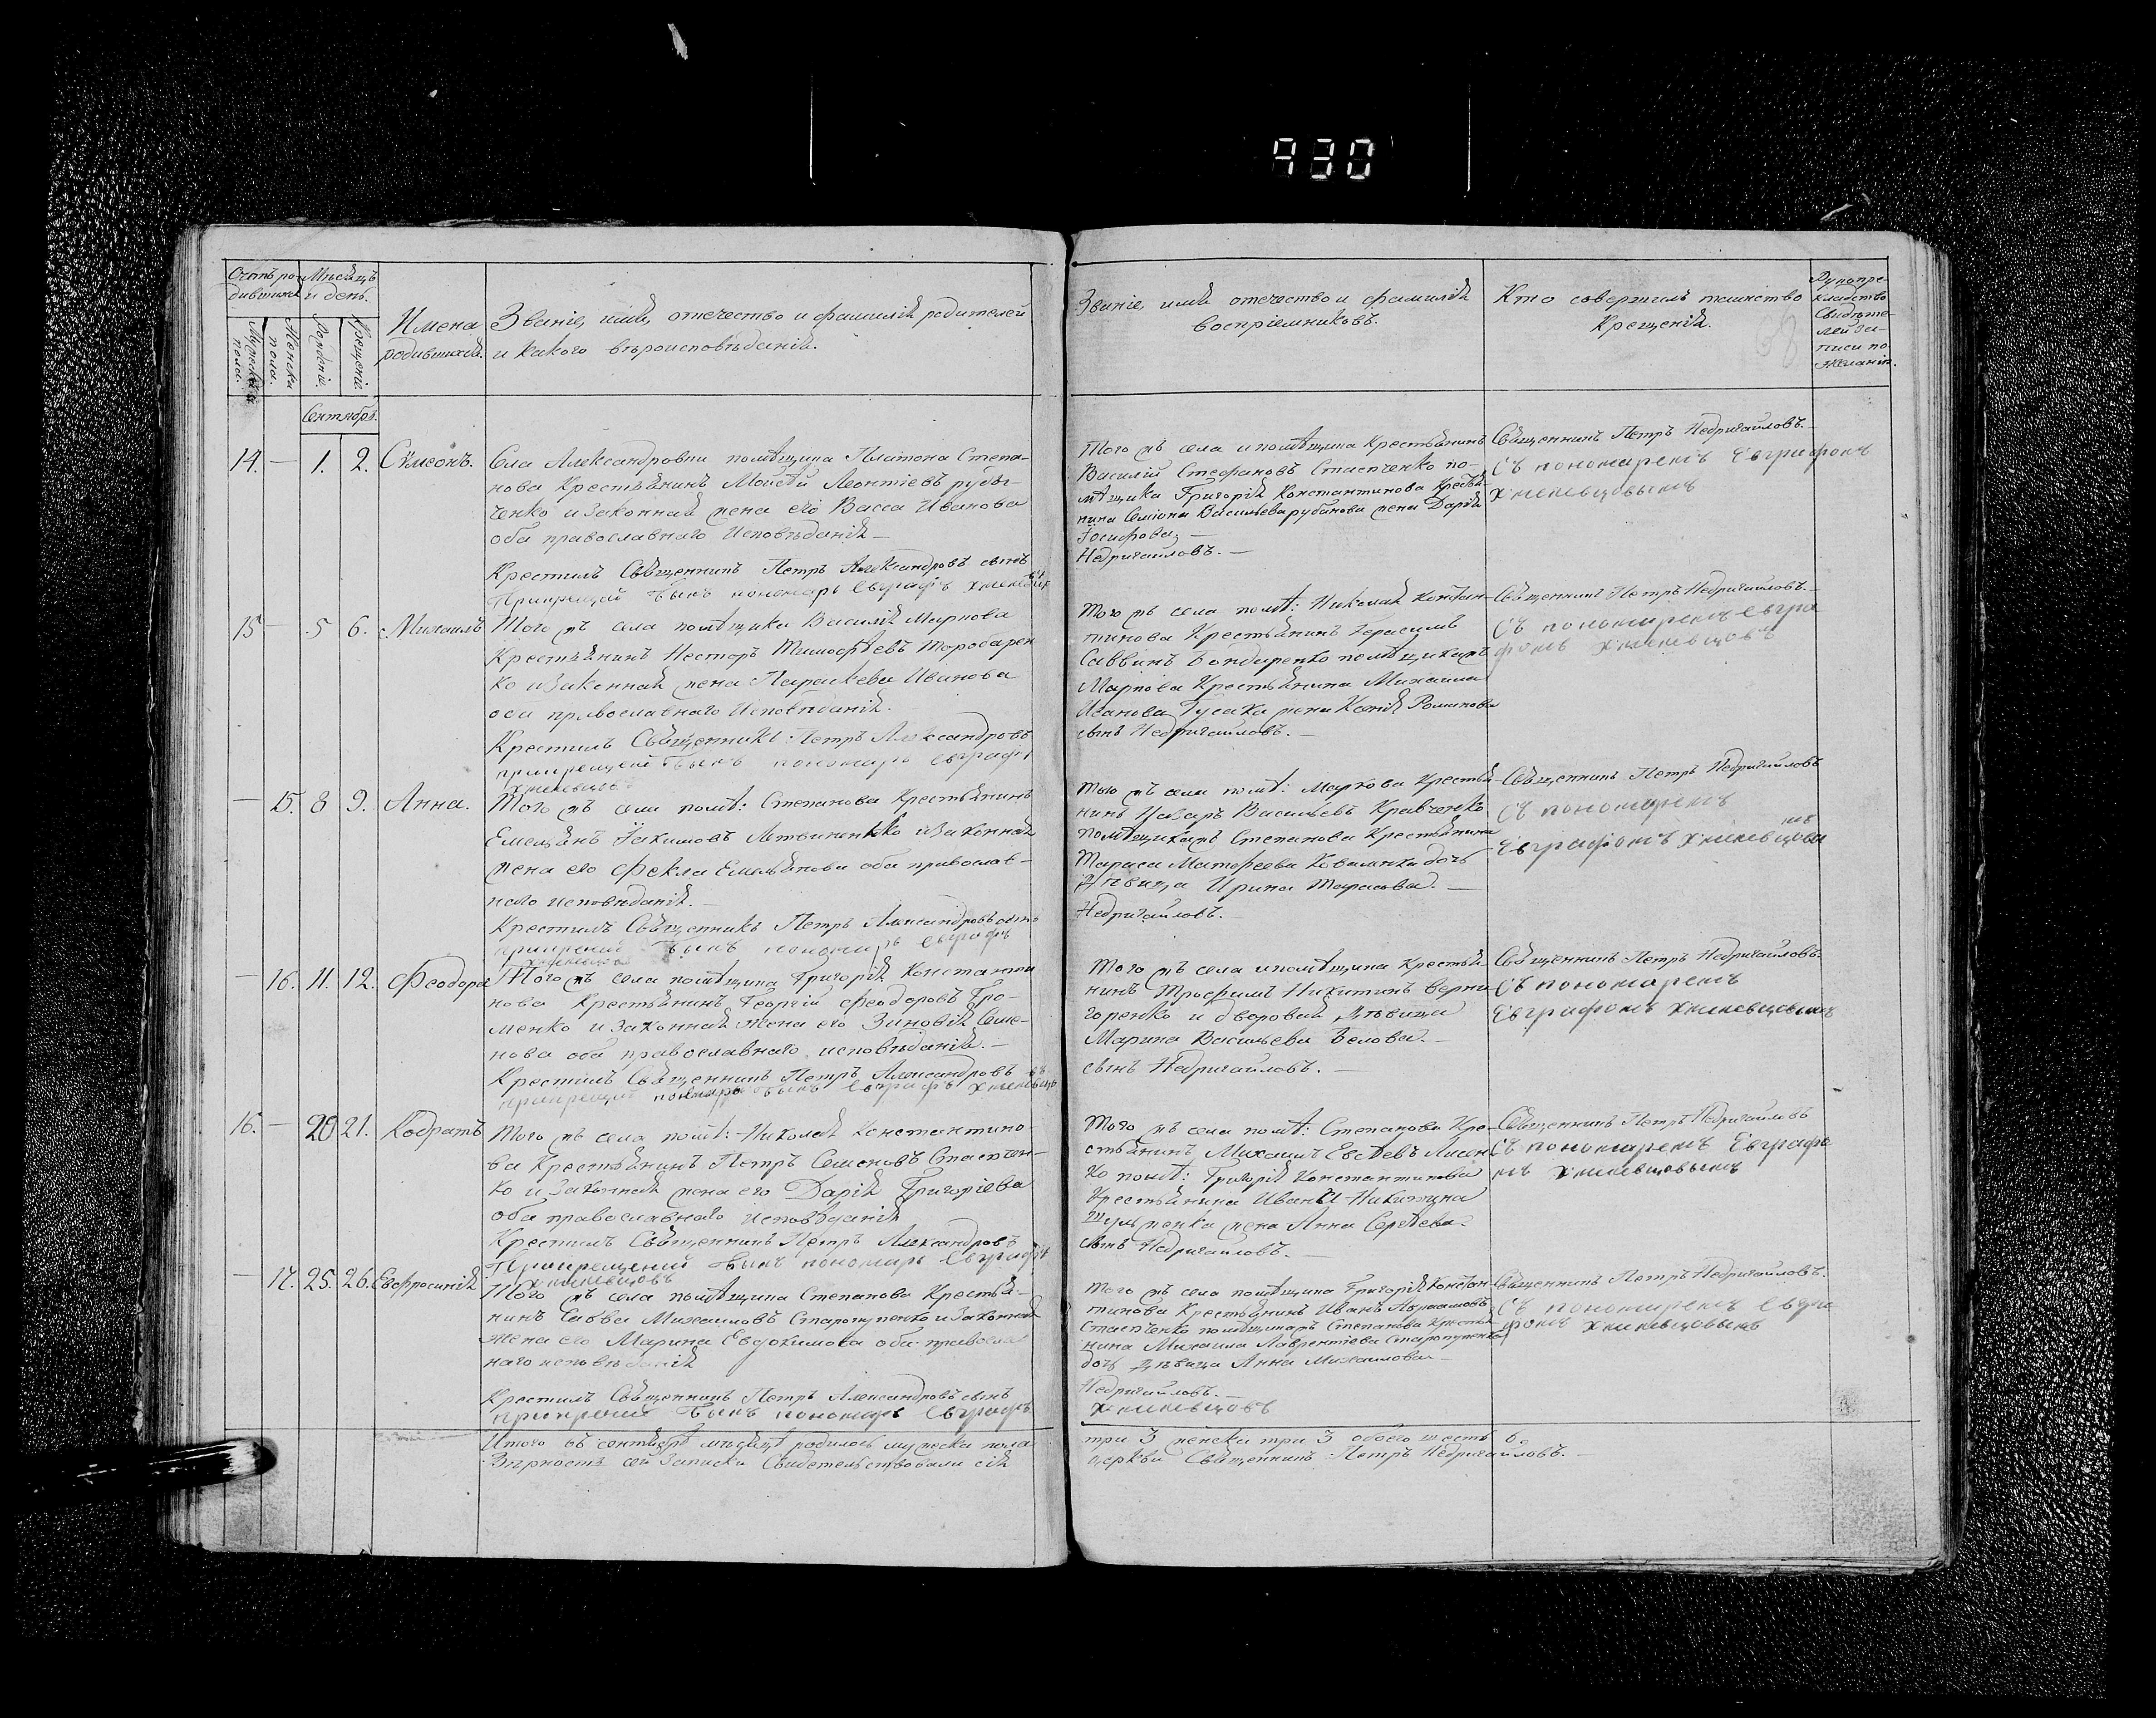 930
Счетъ ро-
дившихся
Мѣсяцъ
и день.
Мужеска
пола.
Женска
пола.
Рожденія.
Крещенія.
Имена
родившихся.
Званіе, имя, отечество и фамилія родителей
и какого вѣроисповѣданія.
Званіе, имя отечество и фамилія
воспріемниковъ.
Кто совершилъ таинство
Крещенія.
Рукопри-
кладство
Свидѣте-
лей за-
писи по
желанію.
Сентябрь.
14. — 1. 2. Сѵмеонъ.
Села Александровки помѣщика Платона Степа-
нова Крестьянинъ Моисей Леонтіевъ
ченко и законная жена его Васса Иванова
оба православнаго исповѣданія —
Крестилъ Священникъ Петръ Александровъ сынъ
былъ пономарь Евграфъ
Того жъ села и помѣщика Крестьянинъ
Василій Стефановъ Стасченко по-
мѣщика Григорія Константинова Крестья-
нина Семіона Васильева рубанова жена Дарія
Іосифова —
Недригайловъ. —
Священникъ Петръ Недригайловъ.
Съ пономаремъ Евграфомъ
Хмелевцовымъ
15 — 5 6. Михаилъ
Того жъ села помѣщика Василія Маркова
Крестьянинъ Несторъ Тимофѣевъ
ко и законная жена Параскева Иванова
оба православнаго исповѣданія.
Крестилъ Священникъ Петръ Александровъ
былъ пономарь Евграфъ
Хмелевцовъ
Того жъ села помѣ: Николая Констан-
тинова Крестьянинъ Герасимъ
Саввинъ Бондаренко помѣщика жъ
Маркова Крестьянина Михаила
Иванова Гусака жена Ксенія Романова
сынъ Недригайловъ. —
Священникъ Петръ Недригайловъ.
Съ пономаремъ Евгра
фомъ Хмелевцовъ
— 15. 8 9. Анна.
Того жъ села помѣ: Степанова Крестьянинъ
Емельянъ Іакимовъ Литвиненко и законная
жена его Фекла Емельянова оба православ-
наго исповѣданія. —
Крестилъ Священникъ Петръ Александровъ сынъ
былъ пономарь Евграфъ
Того жъ села помѣ: Маркова Крестья-
нинъ Назаръ Васильевъ Кравченко
помѣщика жъ Степанова Крестьянина
Тараса Матфеева дочь
Дѣвица Ирина Тарасова. —
Недригайловъ. —
Священникъ Петръ Недригайловъ
Съ пономаремъ
Евграфомъ Хмелевцовы
мъ
— 16. 11. 12. Феодора
Того жъ села помѣщика Григорія Константи
нова Крестьянинъ Георгій Феодоровъ Гро-
менко и законная жена его Зиновія Семе-
нова оба православнаго исповѣданія. —
Крестилъ Священникъ Петръ Александровъ
пономарь былъ Евграфъ
Того жъ села и помѣщика Крестья-
нинъ Трофимъ Никитинъ Верни
горенко и дворовая Дѣвица
Марина Васильева Белова. —
сынъ Недригайловъ. —
Священникъ Петръ Недригайловъ.
Съ пономаремъ
Евграфомъ Хмелевцовымъ
16. — 20 21. Кодратъ
Того жъ села помѣ: Николая Константино-
ва Крестьянинъ Петръ Семеновъ Стасчен-
ко и законная жена его Дарія Григоріева
оба православнаго исповѣданія
Крестилъ Священникъ Петръ Александровъ
былъ пономарь Евграфъ
Хмелевцовъ
Того жъ села помѣ: Степанова Кре-
стьянинъ Михаилъ Евсѣевъ Лисен
ко помѣ: Григорія Константинова
Крестьянина Ивана Никитина
жена Анна Сергѣева.
сынъ Недригайловъ. —
Священникъ Петръ Недригайловъ
Съ пономаремъ Евграфо
мъ Хмелевцовымъ
— 17. 25. 26. Евфросинія
Того жъ села помѣщика Степанова Крестья-
нинъ Савва Михаиловъ и законная
жена его Марина Евдокимова оба православ
наго исповѣданія
Крестилъ Священникъ Петръ Александровъ сынъ
былъ пономарь Евграфъ
Того жъ села помѣщика Григорія Констан-
тинова Крестьянинъ Иванъ Авраамовъ
Стасченко помѣщика жъ Степанова Крестья
нина Михаила Лаврентіева
дочь Дѣвица Анна Михаилова —
Недригайловъ. —
Хмелевцовъ
Священникъ Петръ Недригайловъ.
Съ пономаремъ Евгра
фомъ Хмелевцовымъ
Итого въ сентябрѣ мѣсяцѣ родилось мужеска пола
три 3 женска три 3 обоего шесть 6.
Вѣрность сей записки Свидетельствовали сія
церкви Священникъ Петръ Недригайловъ. —